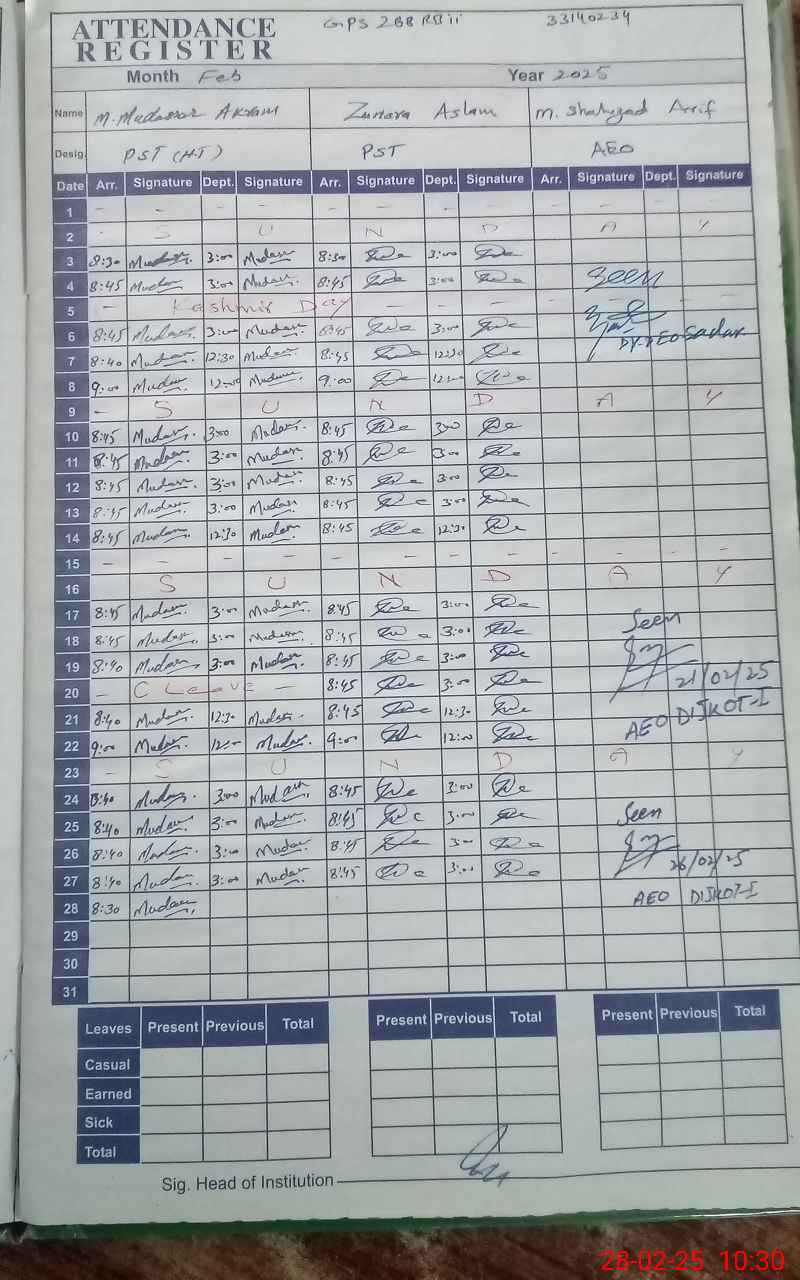 ATTENDANCE REGISTER GPS 268 RB ii 33140234
Month Feb Year 2025
Name M. Mudassar Akram Zunara Aslam M. Shahzad Arif
Desig. PST (H.T) PST AEO
Date Arr. Signature Dept. Signature Arr. Signature Dept. Signature Arr. Signature Dept. Signature
1 - - - - - - - - - - - -
2 - S U N D A Y
3 8:30 Mudassar 3:00 Mudassar 8:30 3:00
4 8:45 Mudassar 3:00 Mudassar 8:45 3:00 Seen
5 - Kashmir Day - - - - - - - -
6 8:45 Mudassar 3:00 Mudassar 8:45 3:00
7 8:40 Mudassar 12:30 Mudassar 8:45 12:30 DY.DEO Sadar
8 9:00 Mudassar 12:00 Mudassar 9:00 12:00
9 - S U N D A Y
10 8:45 Mudassar 3:00 Mudassar 8:45 3:00
11 8:45 Mudassar 3:00 Mudassar 8:45 3:00
12 8:45 Mudassar 3:00 Mudassar 8:45 3:00
13 8:45 Mudassar 3:00 Mudassar 8:45 3:00
14 8:45 Mudassar 12:30 Mudassar 8:45 12:30
15 - - - - - - - - - - - -
16 S U N D A Y
17 8:45 Mudassar 3:00 Mudassar 8:45 3:00
18 8:45 Mudassar 3:00 Mudassar 8:45 3:00 Seen
19 8:40 Mudassar 3:00 Mudassar 8:45 3:00
20 - C Leave - 8:45 3:00 21/02/25
21 8:40 Mudassar 12:30 Mudassar 8:45 12:30 AEO DIJKOT-I
22 9:00 Mudassar 12:00 Mudassar 9:00 12:00
23 - S U N D A Y
24 8:40 Mudassar 3:00 Mudassar 8:45 3:00
25 8:40 Mudassar 3:00 Mudassar 8:45 3:00 Seen
26 8:40 Mudassar 3:00 Mudassar 8:45 3:00
27 8:40 Mudassar 3:00 Mudassar 8:45 3:00 26/02/25
28 8:30 Mudassar AEO DIJKOT-I
29
30
31
Leaves Present Previous Total Present Previous Total Present Previous Total
Casual
Earned
Sick
Total
Sig. Head of Institution
28-02-25 10:30